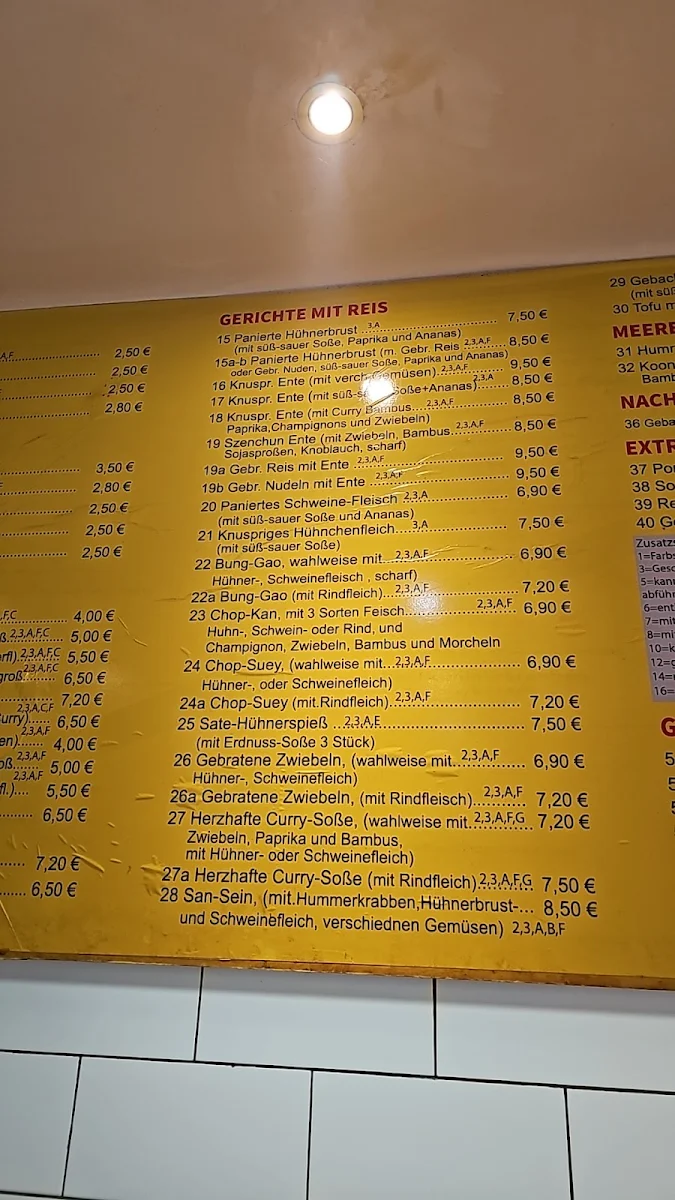 A,F 2,50 €
2,50 €
2,50 €
2,80 €
3,50 €
2,80 €
2,50 €
2,50 €
2,50 €
F,C 4,00 €
ß.2,3,A,F,C 5,00 €
rfl) 2,3,A,F,C 5,50 €
groß. 2,3,A,F,C 6,50 €
2,3,A,C,F 7,20 €
urry) 6,50 €
en) 2,3,A,F 4,00 €
oß 2,3,A,F 5,00 €
fl.) 2,3,A,F 5,50 €
6,50 €
7,20 €
6,50 €
GERICHTE MIT REIS
15 Panierte Hühnerbrust 3,A 7,50 €
(mit süß-sauer Soße, Paprika und Ananas)
15a-b Panierte Hühnerbrust (m. Gebr. Reis 2,3,A,F 8,50 €
oder Gebr. Nuden, süß-sauer Soße, Paprika und Ananas)
16 Knuspr. Ente (mit versch. Gemüsen) 2,3,A,F 9,50 €
17 Knuspr. Ente (mit süß-s Soße+Ananas) 2,3,A 8,50 €
18 Knuspr. Ente (mit Curry Bambus 2,3,A,F 8,50 €
Paprika,Champignons und Zwiebeln)
19 Szenchun Ente (mit Zwiebeln, Bambus 2,3,A,F 8,50 €
Sojasproßen, Knoblauch, scharf)
19a Gebr. Reis mit Ente 2,3,A,F 9,50 €
19b Gebr. Nudeln mit Ente 2,3,A,F 9,50 €
20 Paniertes Schweine-Fleisch 2,3,A 6,90 €
(mit süß-sauer Soße und Ananas)
21 Knuspriges Hühnchenfleich 3,A 7,50 €
(mit süß-sauer Soße)
22 Bung-Gao, wahlweise mit 2,3,A,F 6,90 €
Hühner-, Schweinefleisch , scharf)
22a Bung-Gao (mit Rindfleich) 2,3,A,F 7,20 €
23 Chop-Kan, mit 3 Sorten Feisch 2,3,A,F 6,90 €
Huhn-, Schwein- oder Rind, und
Champignon, Zwiebeln, Bambus und Morcheln
24 Chop-Suey, (wahlweise mit 2,3,A,F 6,90 €
Hühner-, oder Schweinefleich)
24a Chop-Suey (mit.Rindfleich) 2,3,A,F 7,20 €
25 Sate-Hühnerspieß 2,3,A,E 7,50 €
(mit Erdnuss-Soße 3 Stück)
26 Gebratene Zwiebeln, (wahlweise mit 2,3,A,F 6,90 €
Hühner-, Schweinefleich)
26a Gebratene Zwiebeln, (mit Rindfleisch) 2,3,A,F 7,20 €
27 Herzhafte Curry-Soße, (wahlweise mit 2,3,A,F,G 7,20 €
Zwiebeln, Paprika und Bambus,
mit Hühner- oder Schweinefleich)
27a Herzhafte Curry-Soße (mit Rindfleich) 2,3,A,F,G 7,50 €
28 San-Sein, (mit.Hummerkrabben,Hühnerbrust-... 8,50 €
und Schweinefleich, verschiednen Gemüsen) 2,3,A,B,F
29 Gebac
(mit süß
30 Tofu m
MEERE
31 Humr
32 Koon
Bamb
NACH
36 Geba
EXTR
37 Po
38 So
39 Re
40 G
Zusatz
1=Farbs
3=Gesc
5=kan
abführ
6=ent
7=mit
8=mi
10=k
12=g
14=
16=
G
5
5